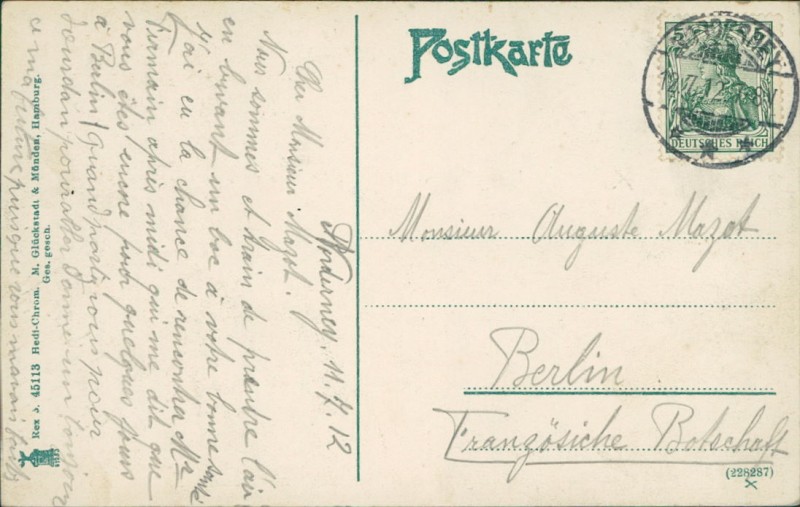 Postkarte
NORDERNEY
DEUTSCHES REICH
Norderney, 11.7.12
Cher Monsieur Mazot.
Nous sommes et train de prendre l'air
en buvant un boc à votre bonne santé
J'ai eu la chance de rencontrer Mr
Germain après midi qui me dit que
vous êtes encore pour quelques jours
à Berlin! Quand partez vous pour
pour aller
puisque vous
Monsieur Auguste Mazot
Berlin
Französiche Botschaft
(228287)
X
Rex 3. 45113 Hedi-Chrom. M. Glückstadt & Münden, Hamburg.
Ges. gesch.